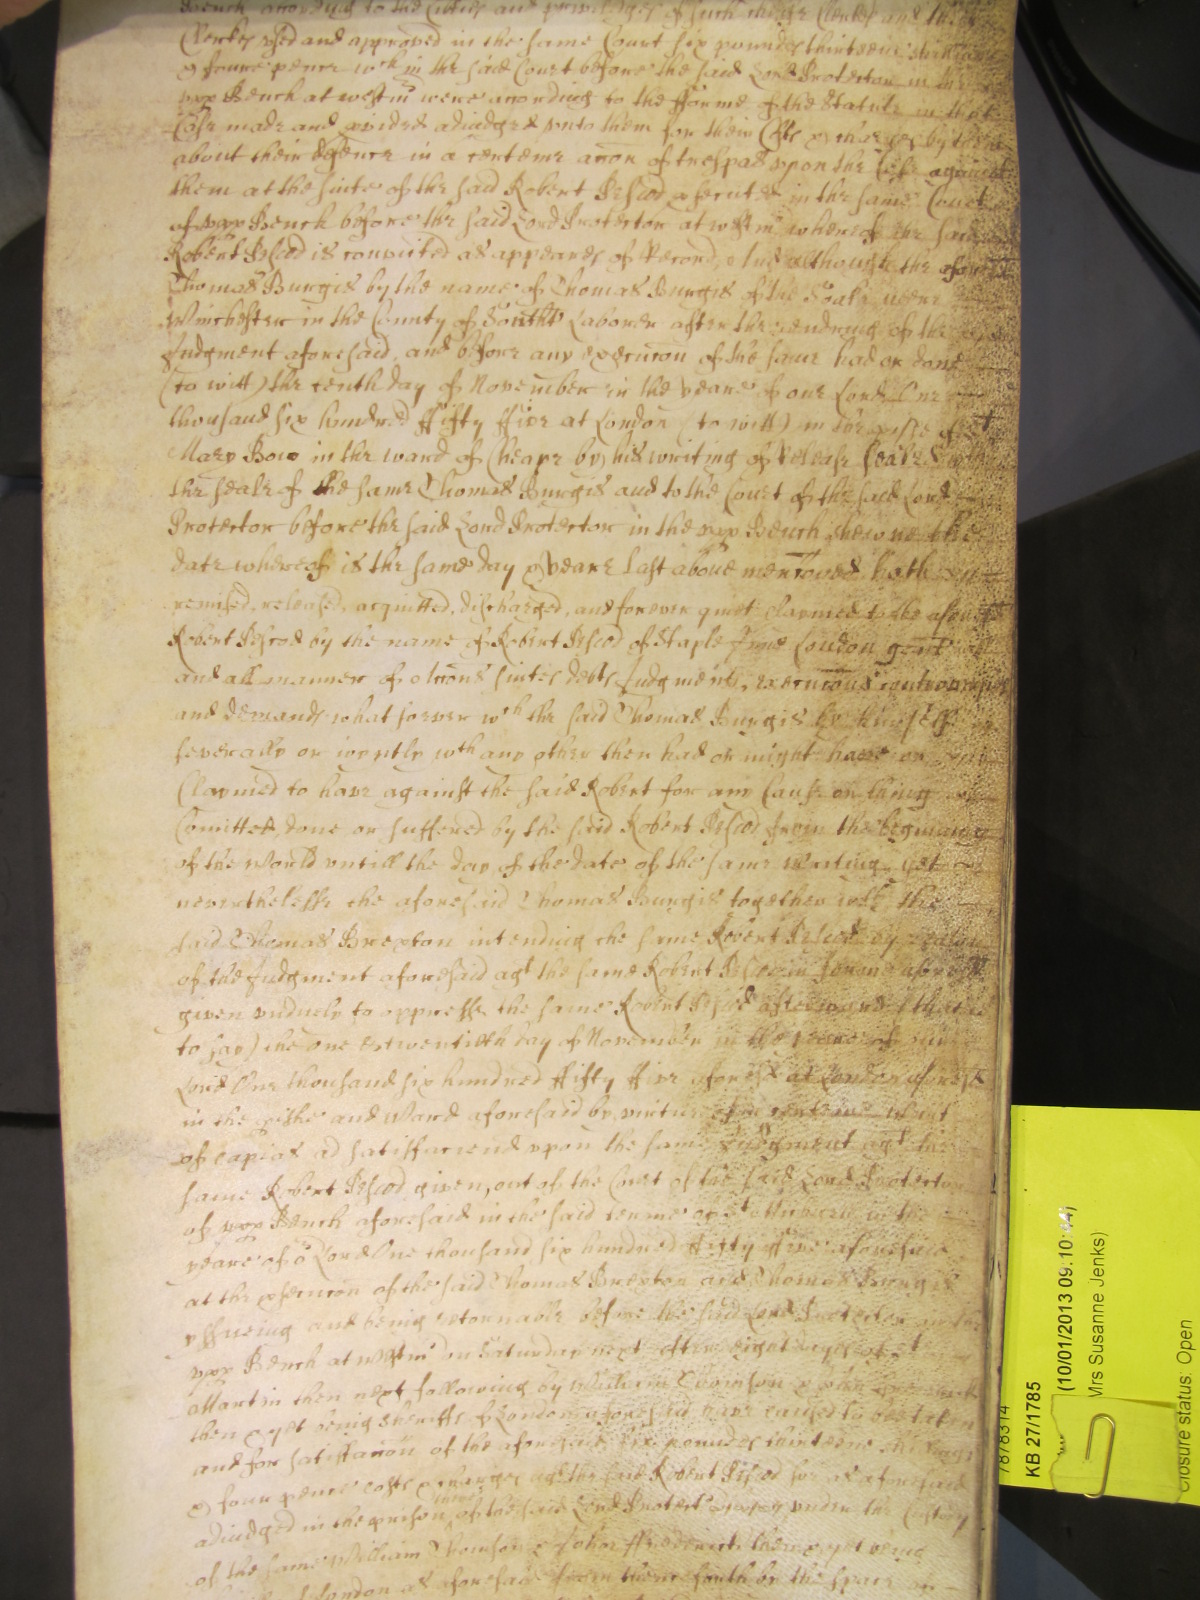 Bench according to the Custos and priviledges of such their Clerkes and the
Clerkes vsed and approved in the same Court six pounds thirteene shillings
& foure pence wch in the said Court before the said Lord Protector in the
vpp Bench at westm were according to the fforme of the Statute in that
Case made and adiudged vnto them for their Costs & charges by them
about their defence in a certeine accon of trespas vpon the Case against
them at the suite of the said Robert Pescod psecuted in the same Court
of vpp Bench before the said Lord Protector at westm whereof the said
Robert Pescod is convicted as appeares of Record, And although the aforesd
Thomas Burgis by the name of Thomas Burgis of the Soake neere
Winchester in the County of South Laborer after the rendring of the
Judgment aforesaid, and before any execucon of the same had or done
(to witt) the tenth day of November in the yeare of our Lord One
thousand six hundred ffifty ffive at London (to witt) in the pishe of st
Mary Bow in the ward of Cheape by his writing of Release Sealed with
the seale of the same Thomas Burgis and to the Court of the said Lord
Protector before the said Lord Protector in the vpp Bench shewne the
date whereof is the same day & yeare last aboue menconed hath
remised, released, acquitted, discharged, and forever quiet claymed to the aforesd
Robert Pescod by the name of Robert Pescod of Staple Inne London gent all
and all manner of Accons suites debts Judgments, execucons controversies
and demands what soever wch the said Thomas Burgis by himselfe
severally or ioyntly wth any other then had or might have or
Claymed to have against the said Robert for any Cause or thing
Comitted done or suffered by the said Robert Pescod from the beginning
of the World vntill the day of the date of the same writing yet
neverthelesse the aforesaid Thomas Burgis together with the
said Thomas Brexton intending the same Robert Pescod by reason
of the Judgment aforesaid agt the same Robert Pescod in forme aforesd
given vnduely to oppresse the same Robert Pescod afterwards (that is
to say) the one & twentieth day of November in the yeare of our
Lord One thousand six hundred ffifty ffive aforesd at London aforesd
in the pishe and Ward aforesaid by virtue of a certeine Writt
of capias ad satisfaciend vpon the same Judgment agt the
same Robert Pescod given, out of the Court of the said Lord Protector
of vpp Bench aforesaid in the said terme of st Michaell in the
yeare of o Lord One thousand six hundred ffifty ffive aforesaid
at the psecucon of the said Thomas Brexton and Thomas Burgis
yssueing and being retornable before the said Lord Protector in the
vpp Bench at westm on Saturday next after eight dayes of st
Martin then next following by William Thomson & John ffrederick
then & yet being sheriffs of London aforesaid have caused to be taken
and for satisfaccon of the aforesaid six pounds thirteene shillings
& four pence costs & charges agt the said Robert Pescod soe as aforesaid
adiudged in the prison of the said Lord Protector vnder the Custody
of the same William Thomson & John ffrederick then & yet being
London as aforesaid from thence forth by the space
7878314
KB 27/1785
(10/01/2013 09:10:44)
Mrs Susanne Jenks)
Closure status: Open